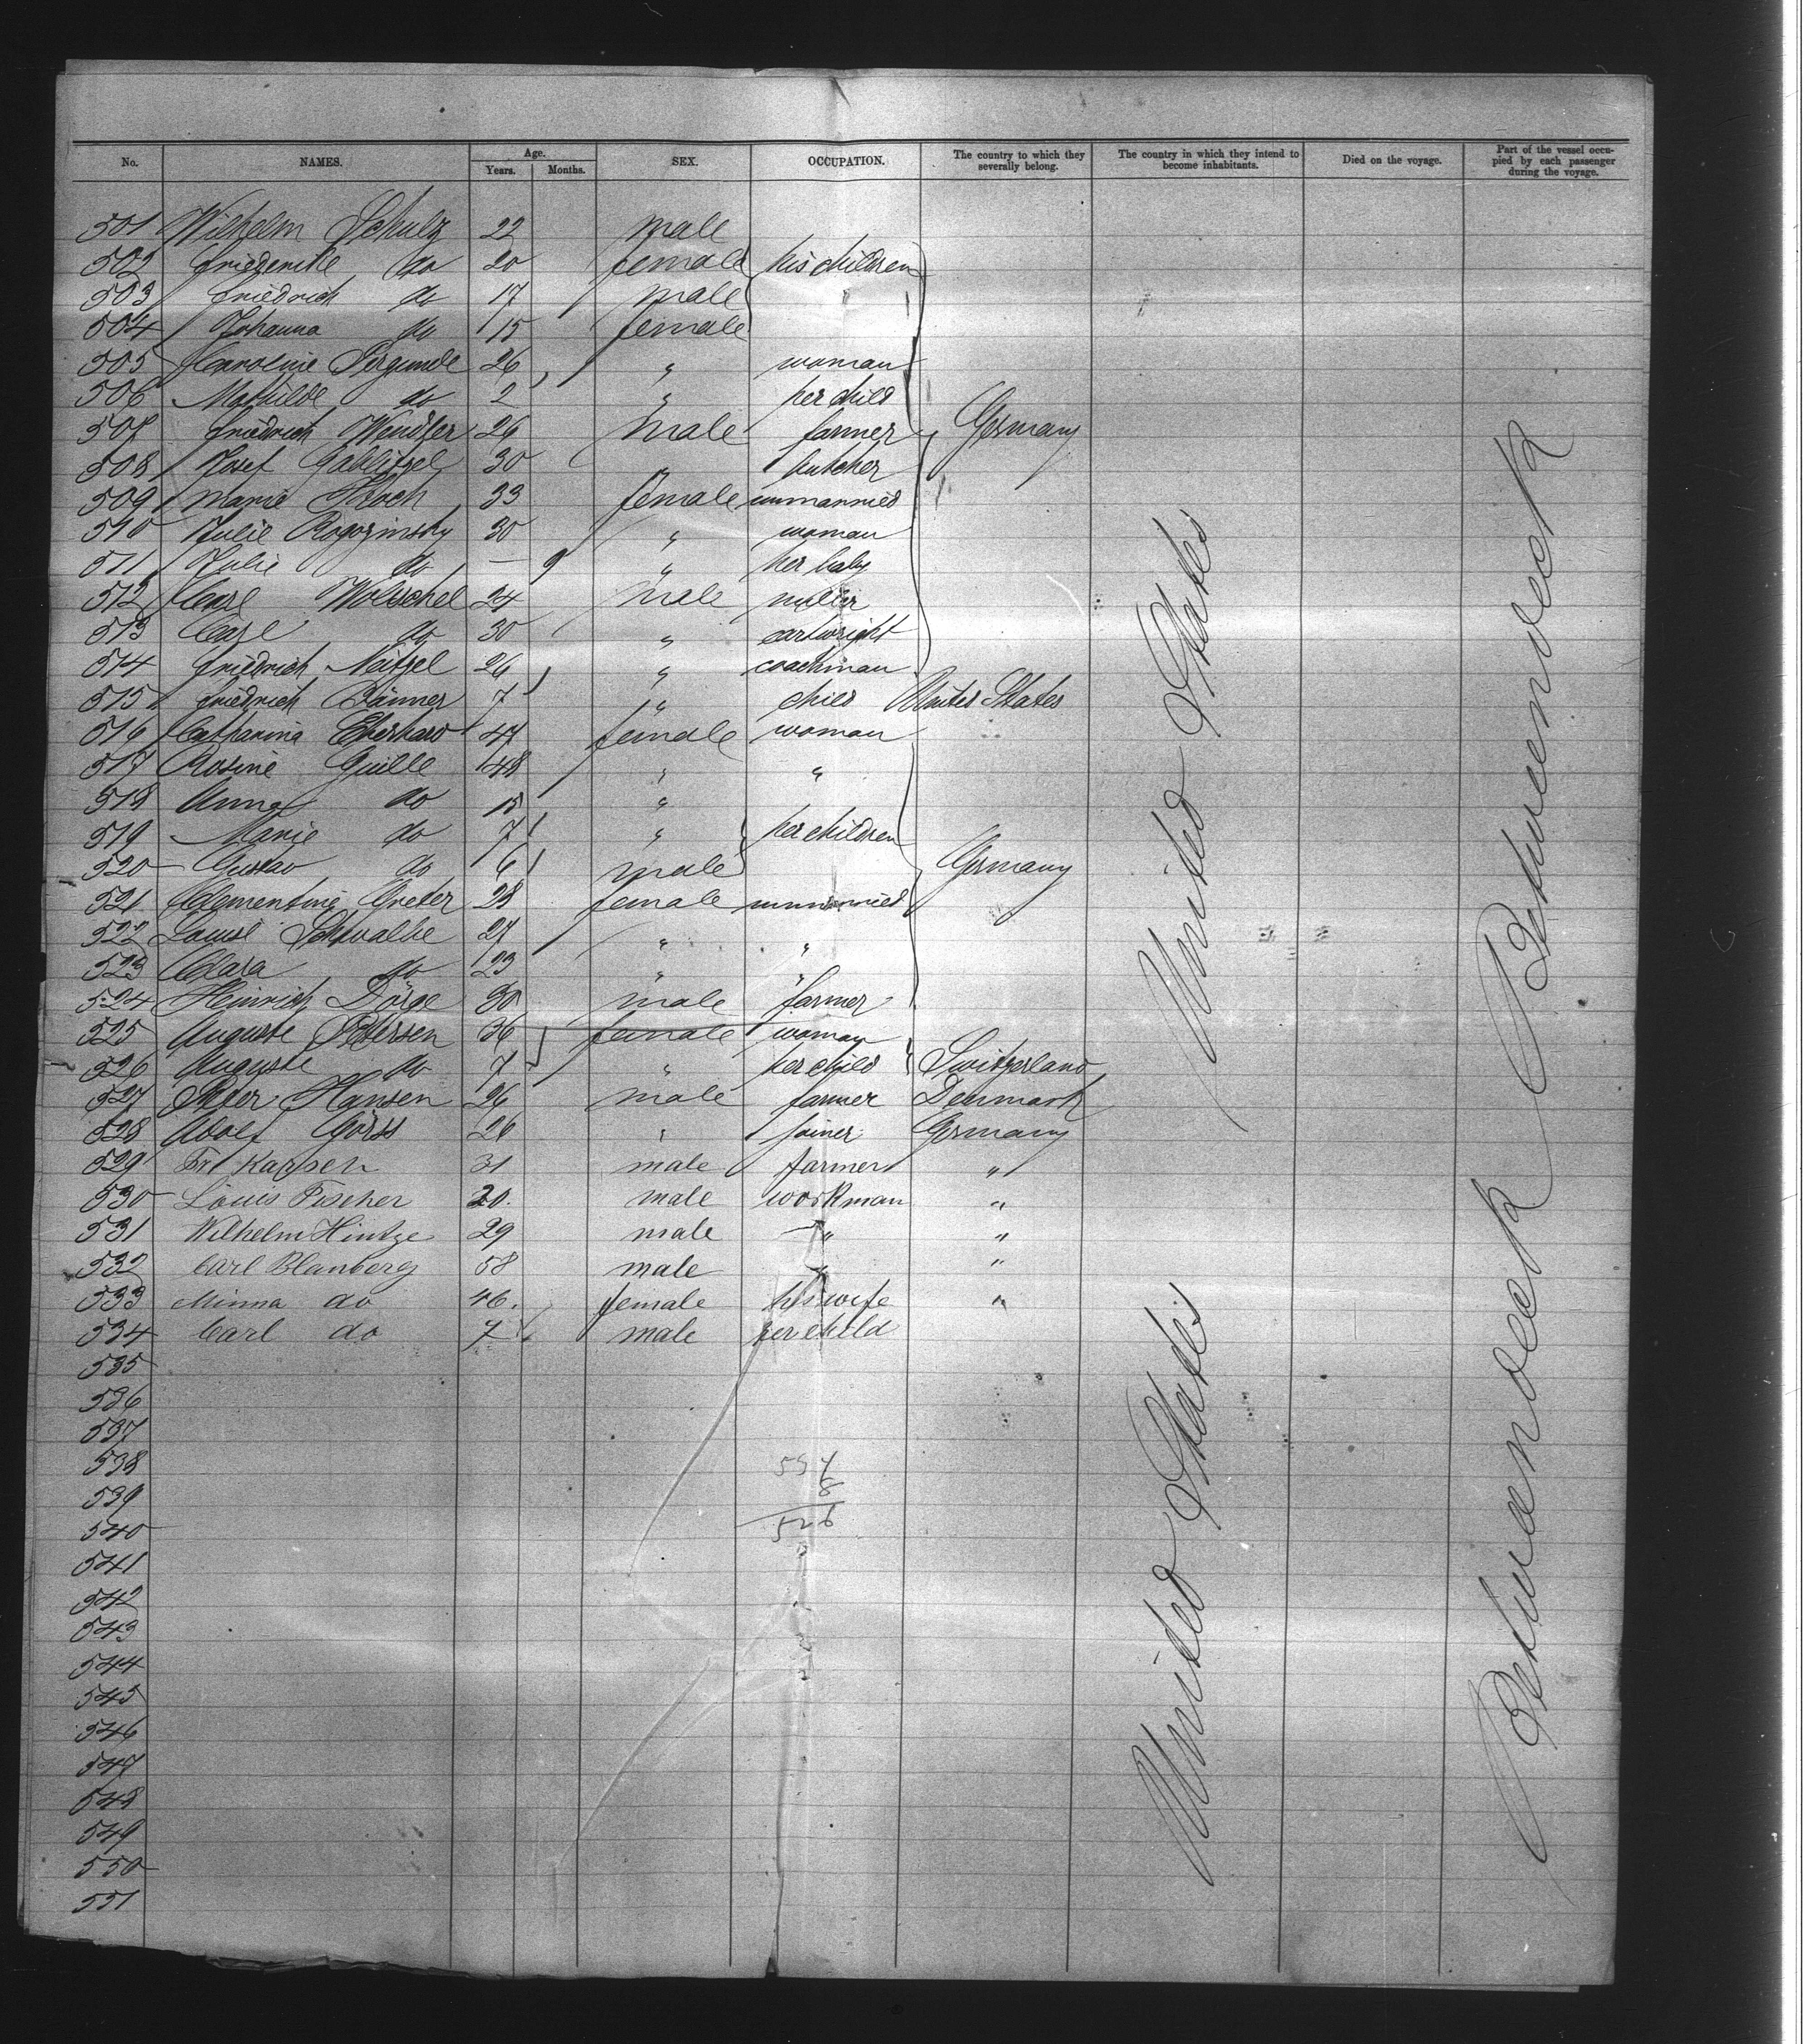 No. NAMES. Age. Years. Months. SEX. OCCUPATION. The country to which they severally belong. The country in which they intend to become inhabitants. Died on the voyage. Part of the vessel occupied by each passenger during the voyage.
501 Wilhelm Schulz 22 male
502 Friederike do 20 female his children
503 Friedrich do 17 male
504 Johanna do 15 female
505 Caroline 26 " woman
506 Mathilde do 2 " her child
507 Friedrich Wendler 26 male farmer Germany
508 Josef 30 " butcher
509 Marie Koch 33 female unmarried
510 Julie Rogozinsky 30 " woman
511 Julie do — 9 " her baby
512 Carl Wolschel 24 male miller
513 Carl do 30 " cartwright
514 Friedrich Neitzel 26 " coachman
515 Friedrich 7 " child United States
516 Catharina Eberhard 47 female woman
517 Rosine Guille 48 " "
518 Anna do 15 "
519 Marie do 7 " her children
520 Gustav do 6 male Germany
521 Clementine Greter 28 female unmarried
522 Louise Schwalbe 27 " "
523 Clara do 23 " "
524 Heinrich Dörge 30 male farmer
525 Auguste Petersen 36 female woman
526 Auguste do 7 " her child Switzerland
527 Peter Hansen 26 male farmer Denmark
528 Adolf Görss 26 " joiner Germany
529 Fr. Karsen 31 male farmer "
530 Louis Fischer 20. male workman "
531 Wilhelm Hintze 29 male " "
532 Carl Blanberg 58 male " "
533 Minna do 46. female his wife "
534 Carl do 7 male her child
535
536
537
538
539
540
541
542
543
544
545
546
547
548
549
550
551
534
8
526
United States
United States
Betweendeck
Betweendeck